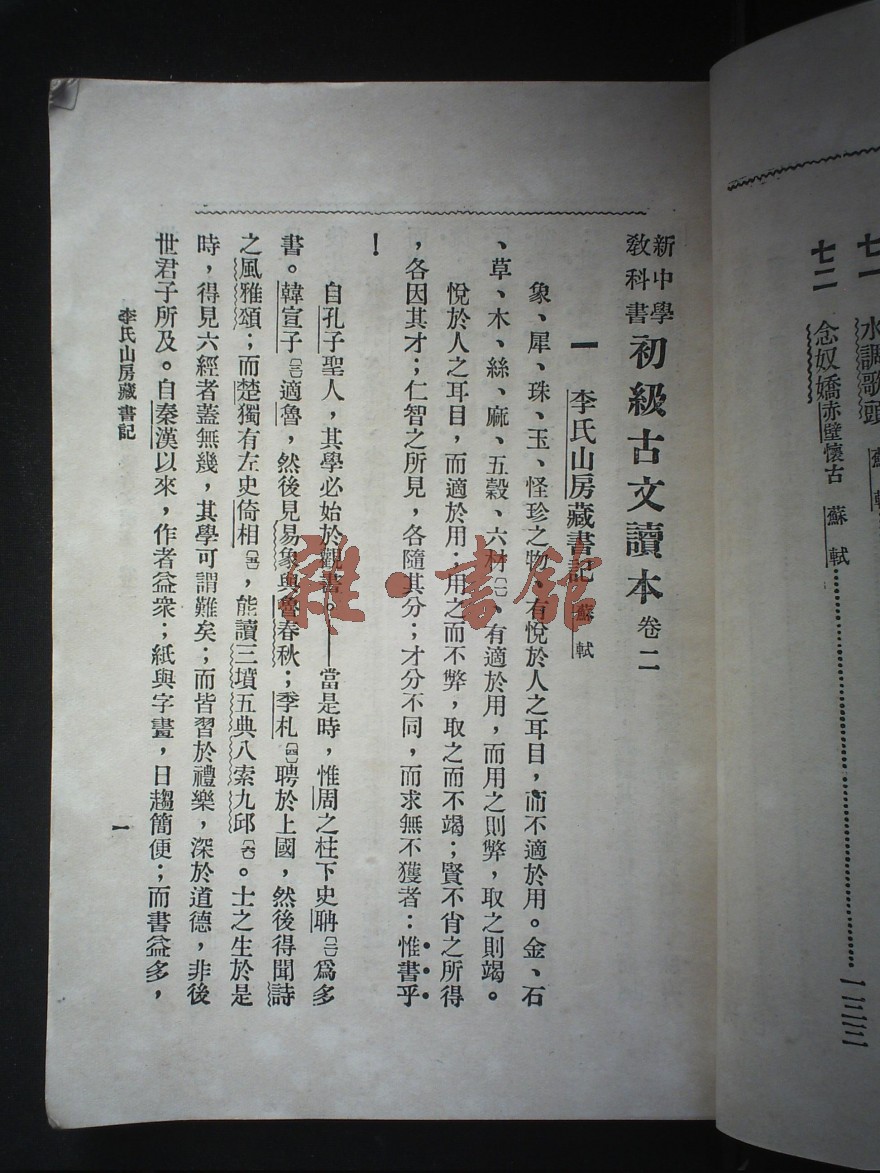 七一 水調歌頭 蘇軾
七二 念奴嬌赤壁懷古 蘇軾……………………一二三
新中學教科書 初級古文讀本 卷二
一 李氏山房藏書記 蘇軾
象、犀、珠、玉、怪珍之物、有悅於人之耳目，而不適於用。金、石
、草、木、絲、麻、五穀、六材〔一〕、有適於用，而用之則弊，取之則竭。
悅於人之耳目，而適於用；用之而不弊，取之而不竭；賢不肖之所得
，各因其才；仁智之所見，各隨其分；才分不同，而求無不獲者：惟書乎
！
自孔子聖人，其學必始於觀書。——當是時，惟周之柱下史聃〔二〕爲多
書。韓宣子〔三〕適魯，然後見易象與魯春秋；季札〔四〕聘於上國，然後得聞詩
之風雅頌；而楚獨有左史倚相〔五〕，能讀三墳五典八索九邱〔六〕。士之生於是
時，得見六經者蓋無幾，其學可謂難矣；而皆習於禮樂，深於道德，非後
世君子所及。自秦漢以來，作者益衆；紙與字畫，日趨簡便；而書益多，
李氏山房藏書記
一
雜·書館